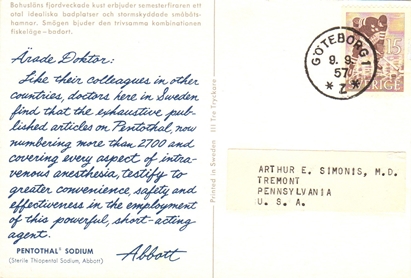 Bohusläns fjordveckade kust erbjuder semesterfiraren ett
otal idealiska badplatser och stormskyddade småbåts-
hamnar. Smögen bjuder den trivsamma kombinationen
fiskeläge - badort.
Ärade Doktor:
Like their colleagues in other
countries, doctors here in Sweden
find that the exhaustive pub-
lished articles on Pentothal, now
numbering more than 2700 and
covering every aspect of intra-
venous anesthesia, testify to
greater convenience, safety and
effectiveness in the employment
of this powerful, short-acting
agent.
PENTOTHAL® SODIUM
(Sterile Thiopental Sodium, Abbott)
Abbott
Printed in Sweden III Tre Tryckare
GÖTEBORG 1
9. 9.
57
* Z *
15
SVERIGE
ARTHUR E. SIMONIS, M.D.
TREMONT
PENNSYLVANIA
U. S. A.